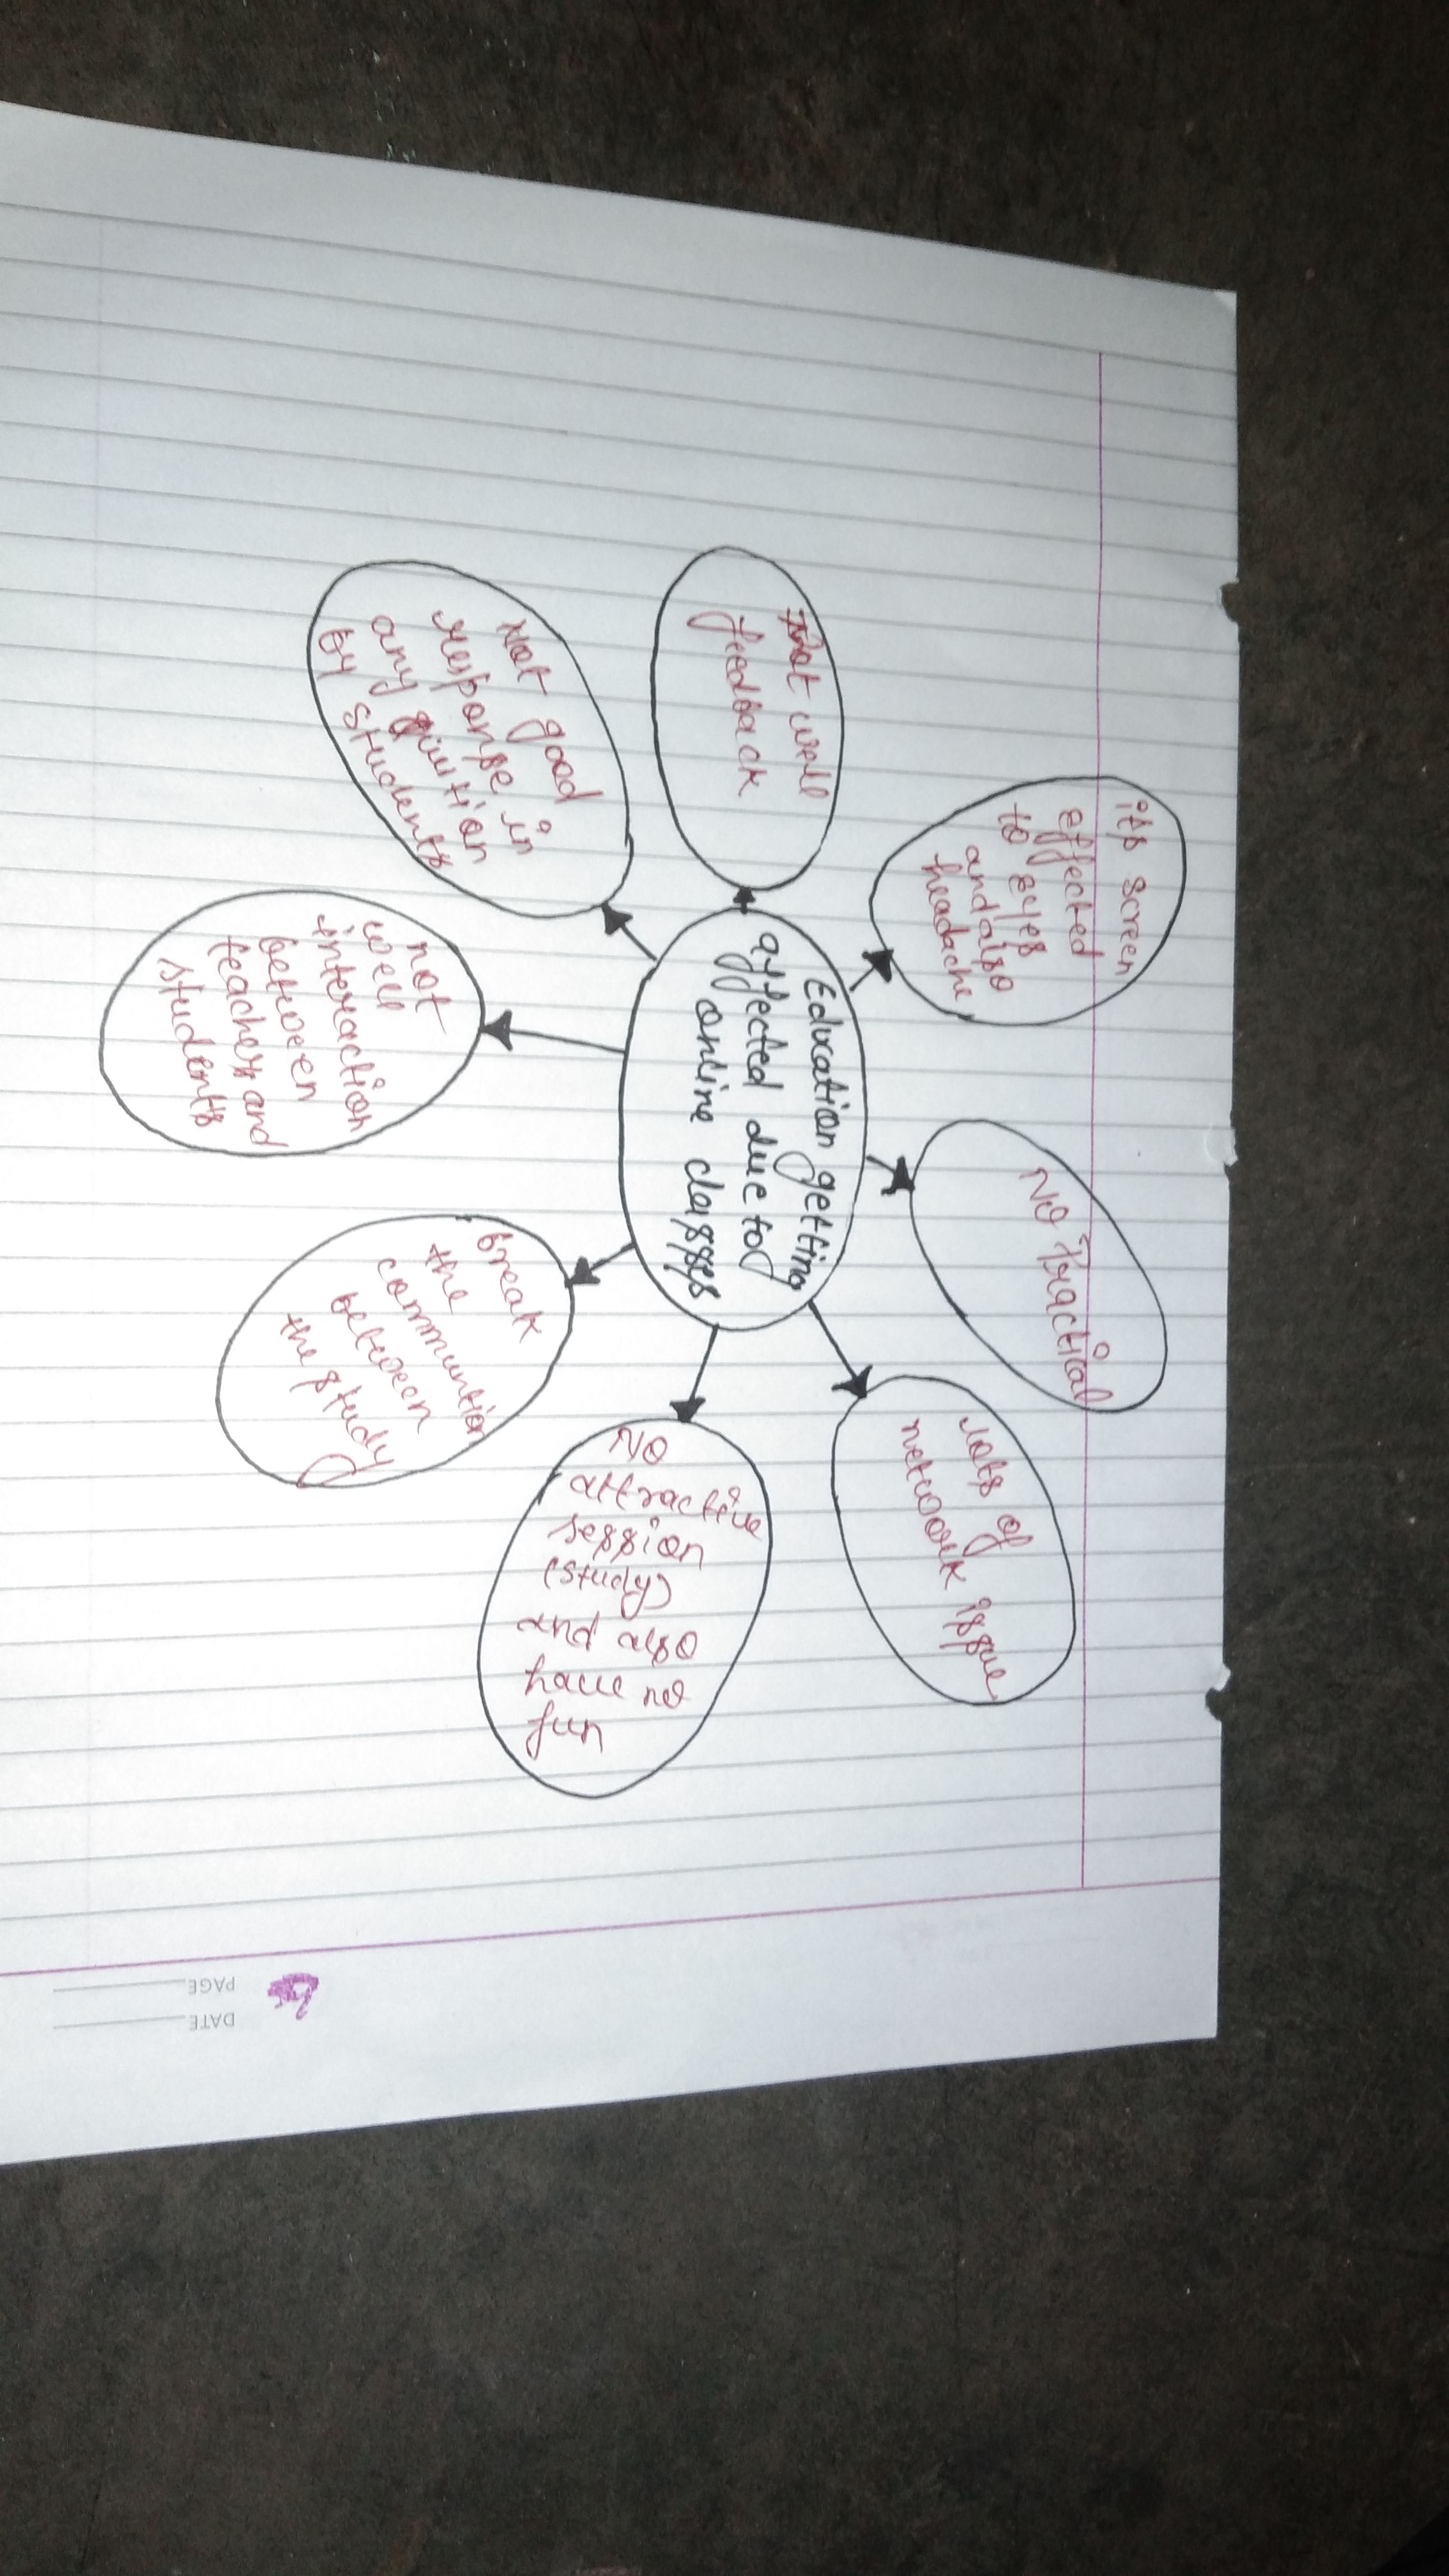 Education getting
affected due to
online classes
its screen
effected
to eyes
and also
headache
No Practical
lots of
network issue
No
attractive
session
(study)
and also
have no
fun
break
the
communtion
between
the study
not
well
interaction
between
teacher and
students
Not good
response in
any
by students
Not well
feedback
PAGE
DATE